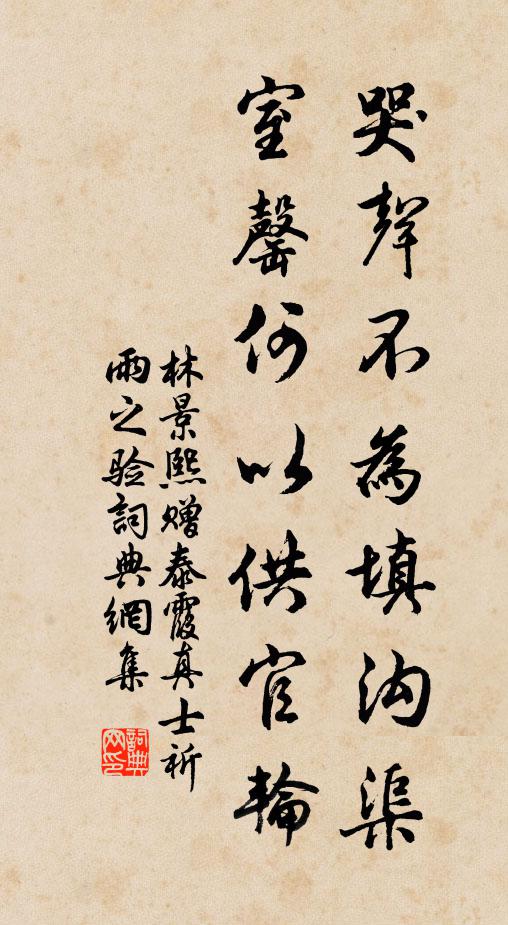 哭聲不為填沟渠
室罄何以供官輪
林景熙赠泰霞真士祈
雨之验詞典網集
詞典網印